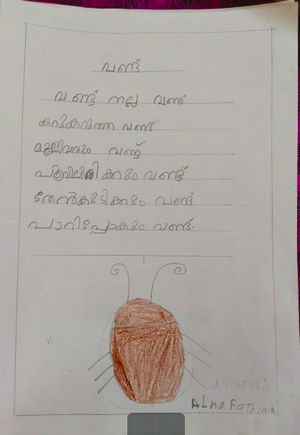 വണ്ട്
വണ്ട് നല്ല വണ്ട്
കറുകറുത്ത വണ്ട്
മൂളിവരും വണ്ട്
പൂവിലിരിക്കും വണ്ട്
തേൻകുടിക്കും വണ്ട്
പാറിപ്പോകും വണ്ട്.
ALna FaThima